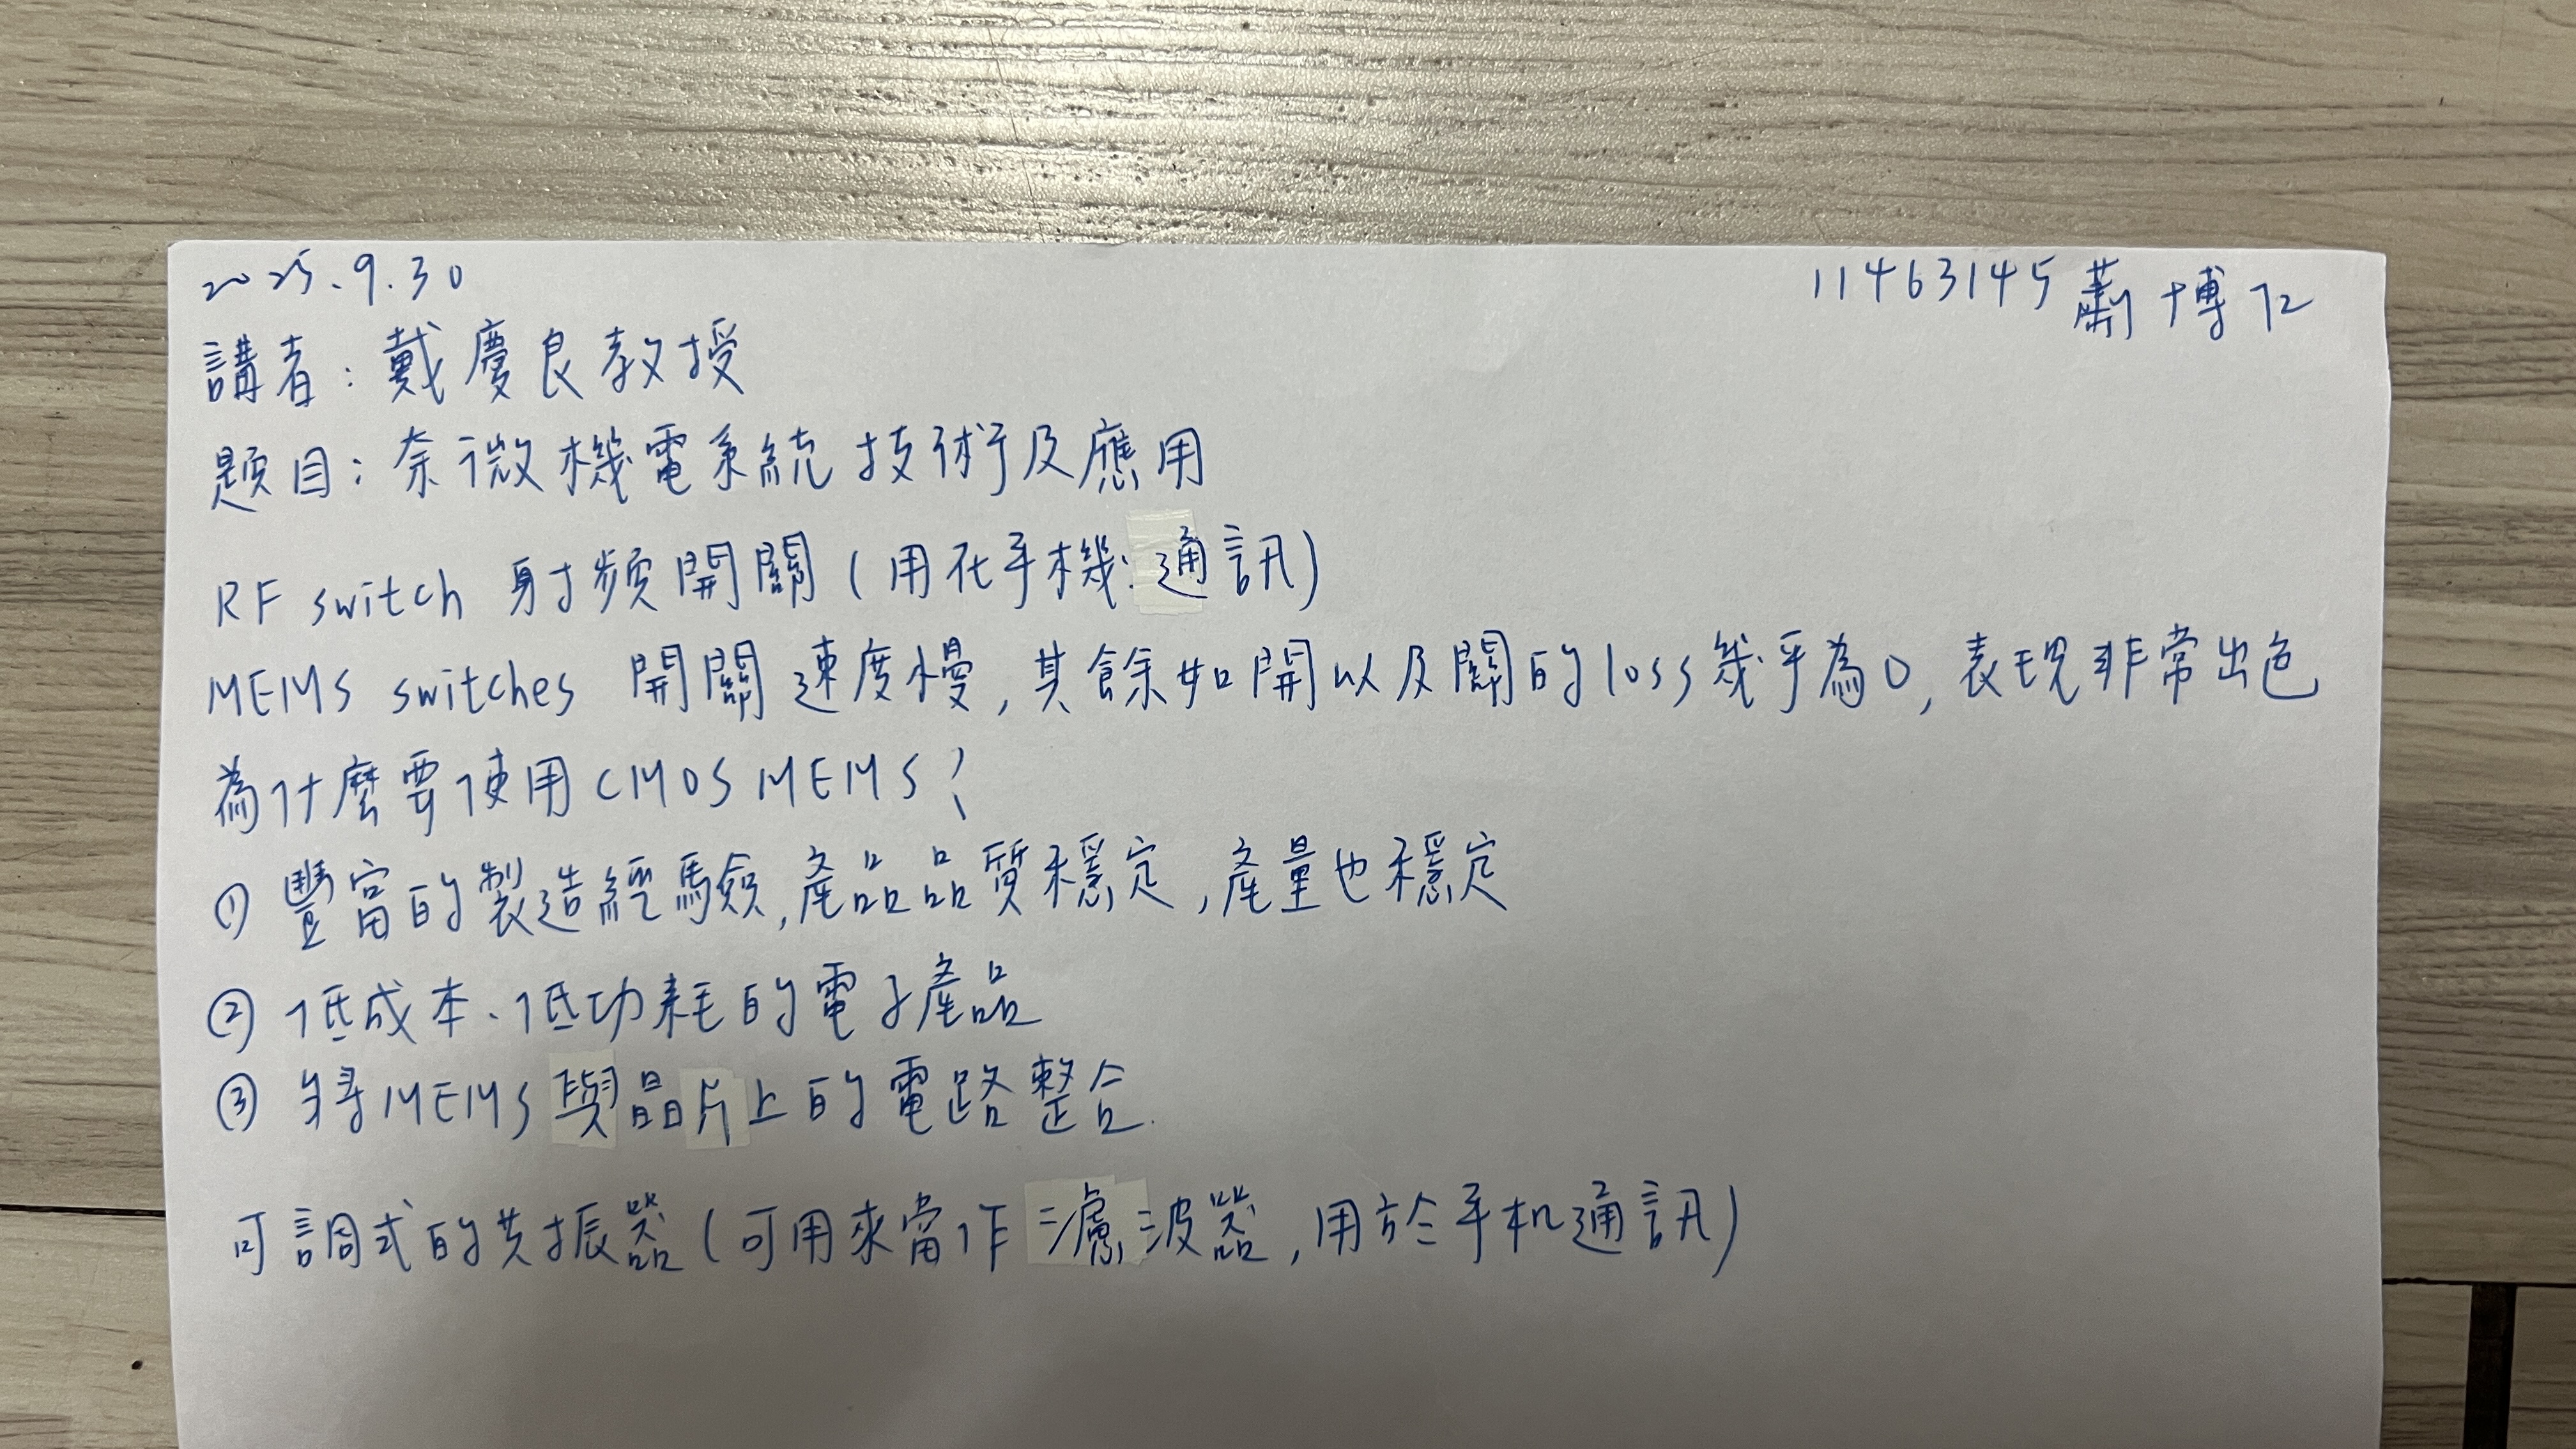 2025.9.30
11463145 蕭博仁
講者：戴慶良教授
題目：奈微機電系統技術及應用
RF switch 射頻開關(用在手機通訊)
MEMS switches 開關速度慢,其餘如開以及關的loss幾乎為0,表現非常出色
為什麼要使用CMOS MEMS?
① 豐富的製造經驗,產品品質穩定,產量也穩定
② 低成本、低功耗的電子產品
③ 將MEMS與晶片上的電路整合.
可調式的共振器(可用來當作濾波器,用於手机通訊)